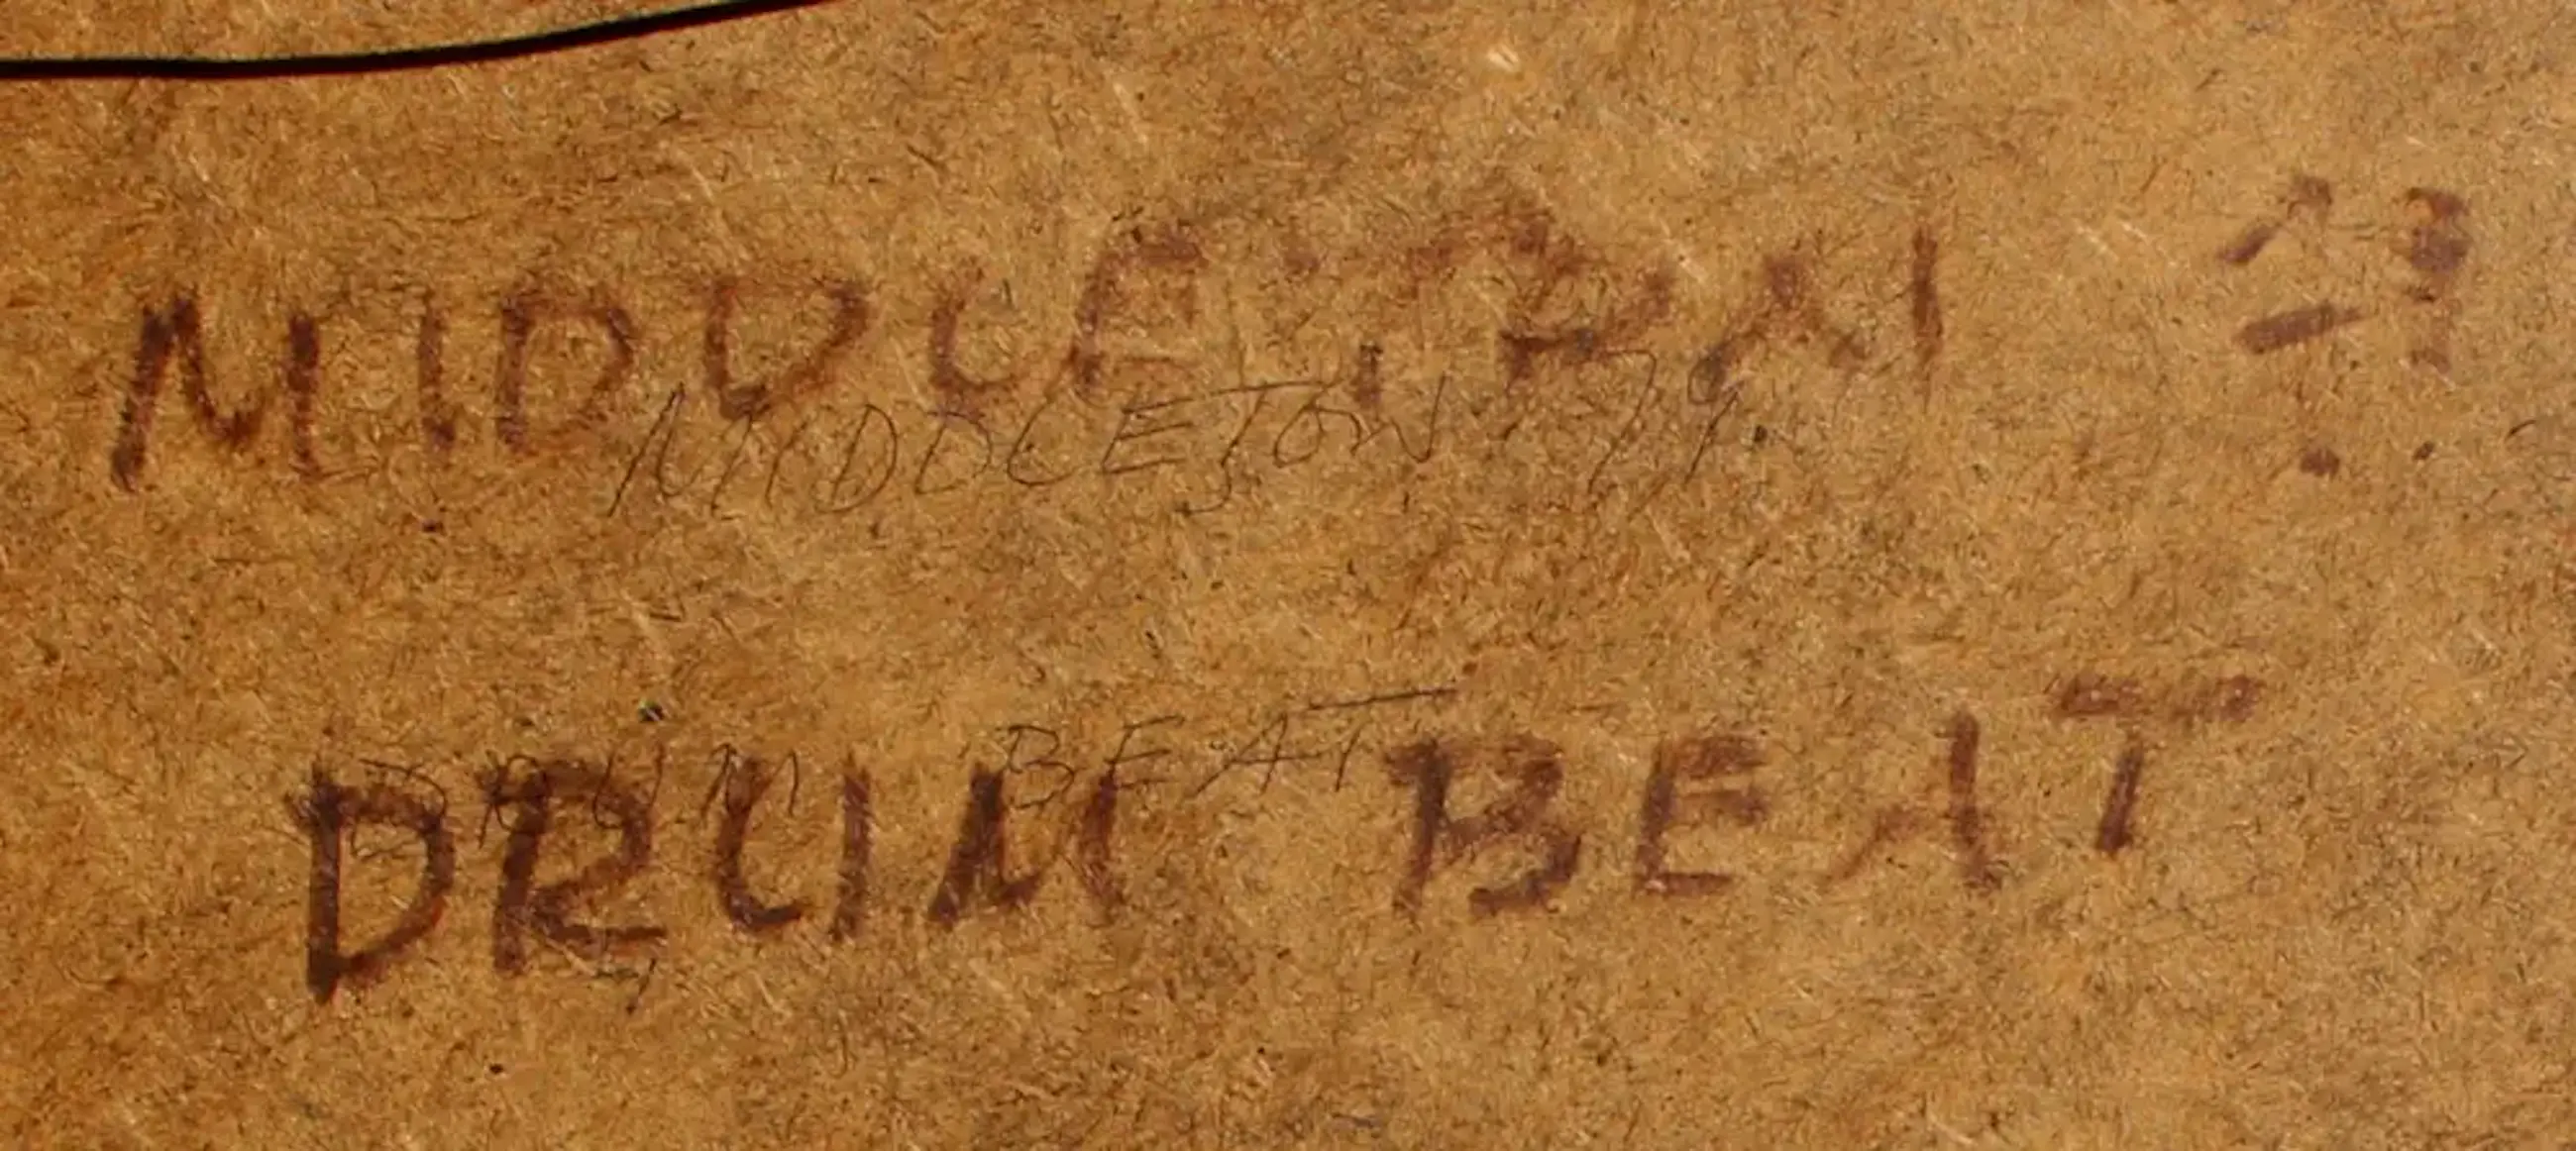 MIDDLETON 79
MIDDLETON 79
DRUM BEAT
DRUM BEAT